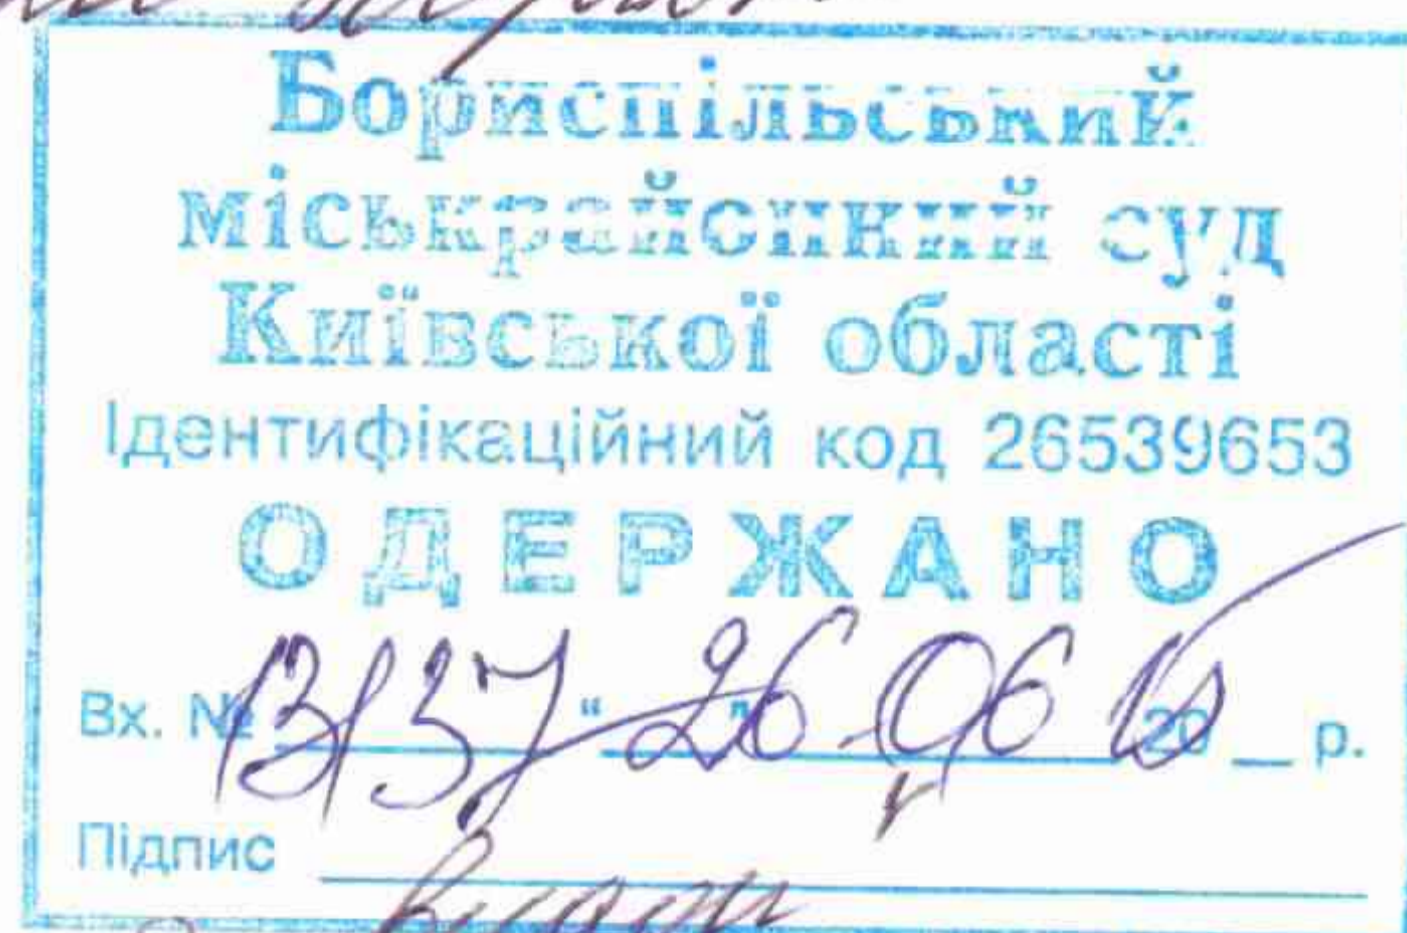 Бориспільський
міськрайонний суд
Київської області
Ідентифікаційний код 26539653
ОДЕРЖАНО
Вх. № 13137 "26" 06 20__ р.
Підпис